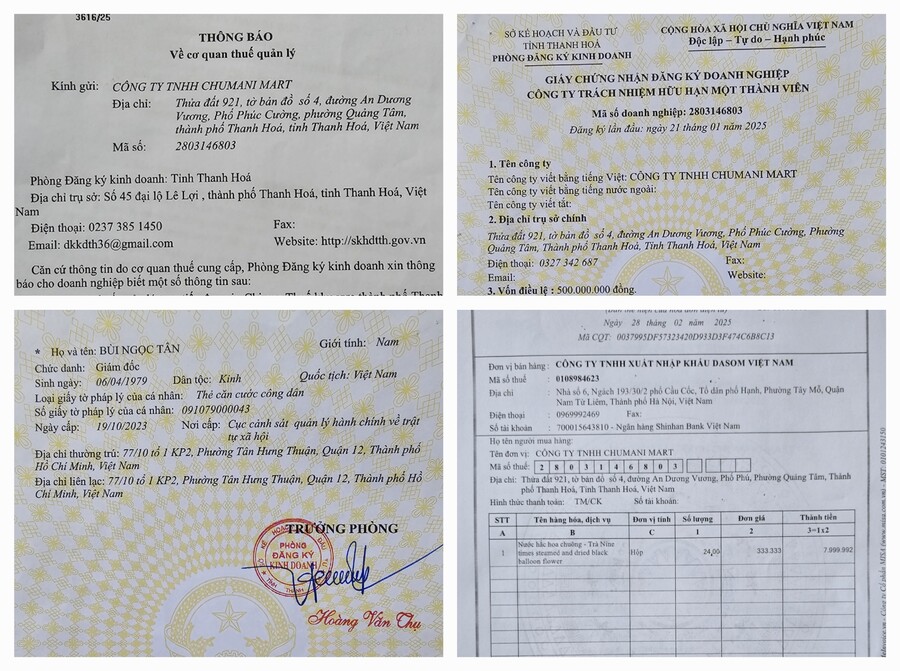 3616/25
THÔNG BÁO
Về cơ quan thuế quản lý
Kính gửi: CÔNG TY TNHH CHUMANI MART
Địa chỉ: Thửa đất 921, tờ bản đồ số 4, đường An Dương
Vương, Phố Phúc Cường, phường Quảng Tâm,
thành phố Thanh Hoá, tỉnh Thanh Hoá, Việt Nam
Mã số: 2803146803
Phòng Đăng ký kinh doanh: Tỉnh Thanh Hoá
Địa chỉ trụ sở: Số 45 đại lộ Lê Lợi , thành phố Thanh Hoá, tỉnh Thanh Hoá, Việt
Nam
Điện thoại: 0237 385 1450 Fax:
Email: dkkdth36@gmail.com Website: http://skhdtth.gov.vn
Căn cứ thông tin do cơ quan thuế cung cấp, Phòng Đăng ký kinh doanh xin thông
báo cho doanh nghiệp biết một số thông tin sau:
SỞ KẾ HOẠCH VÀ ĐẦU TƯ
TỈNH THANH HOÁ
PHÒNG ĐĂNG KÝ KINH DOANH
CỘNG HÒA XÃ HỘI CHỦ NGHĨA VIỆT NAM
Độc lập – Tự do – Hạnh phúc
GIẤY CHỨNG NHẬN ĐĂNG KÝ DOANH NGHIỆP
CÔNG TY TRÁCH NHIỆM HỮU HẠN MỘT THÀNH VIÊN
Mã số doanh nghiệp: 2803146803
Đăng ký lần đầu: ngày 21 tháng 01 năm 2025
1. Tên công ty
Tên công ty viết bằng tiếng Việt: CÔNG TY TNHH CHUMANI MART
Tên công ty viết bằng tiếng nước ngoài:
Tên công ty viết tắt:
2. Địa chỉ trụ sở chính
Thửa đất 921, tờ bản đồ số 4, đường An Dương Vương, Phố Phúc Cường, Phường
Quảng Tâm, Thành phố Thanh Hoá, Tỉnh Thanh Hoá, Việt Nam
Điện thoại: 0327 342 687 Fax:
Email: Website:
3. Vốn điều lệ : 500.000.000 đồng.
* Họ và tên: BÙI NGỌC TÂN Giới tính: Nam
Chức danh: Giám đốc
Sinh ngày: 06/04/1979 Dân tộc: Kinh Quốc tịch: Việt Nam
Loại giấy tờ pháp lý của cá nhân: Thẻ căn cước công dân
Số giấy tờ pháp lý của cá nhân: 091079000043
Ngày cấp: 19/10/2023 Nơi cấp: Cục cảnh sát quản lý hành chính về trật
tự xã hội
Địa chỉ thường trú: 77/10 tổ 1 KP2, Phường Tân Hưng Thuận, Quận 12, Thành phố
Hồ Chí Minh, Việt Nam
Địa chỉ liên lạc: 77/10 tổ 1 KP2, Phường Tân Hưng Thuận, Quận 12, Thành phố Hồ
Chí Minh, Việt Nam
TRƯỞNG PHÒNG
PHÒNG
ĐĂNG KÝ
KINH DOANH
Hoàng Văn Thụ
Ngày 28 tháng 02 năm 2025
Mã CQT: 0037995DF57323420D933D3F474C6B8C13
Đơn vị bán hàng: CÔNG TY TNHH XUẤT NHẬP KHẨU DASOM VIỆT NAM
Mã số thuế : 0108984623
Địa chỉ : Nhà số 6, Ngách 193/30/2 phố Cầu Cốc, Tổ dân phố Hạnh, Phường Tây Mỗ, Quận
Nam Từ Liêm, Thành phố Hà Nội, Việt Nam
Điện thoại : 0969992469 Fax:
Số tài khoản : 700015643810 - Ngân hàng Shinhan Bank Việt Nam
Họ tên người mua hàng:
Tên đơn vị: CÔNG TY TNHH CHUMANI MART
Mã số thuế: 2 8 0 3 1 4 6 8 0 3
Địa chỉ: Thửa 921, tờ bản đồ số 4, đường An Dương Vương, Phố Phú, Phường Quảng Tâm, Thành
phố Thanh Hoá, Tỉnh Thanh Hoá, Việt Nam
Hình thức thanh toán: TM/CK Số tài khoản:
STT Tên hàng hóa, dịch vụ Đơn vị tính Số lượng Đơn giá Thành tiền
A B C 1 2 3=1x2
1 Nước hắc hoa chuông - Trà Nine times steamed and dried black balloon flower Hộp 24,00 333.333 7.999.992